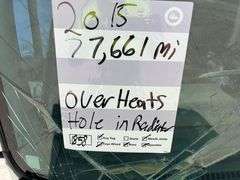 2015
77,661 mi
OverHeats
Hole in Radiator
858